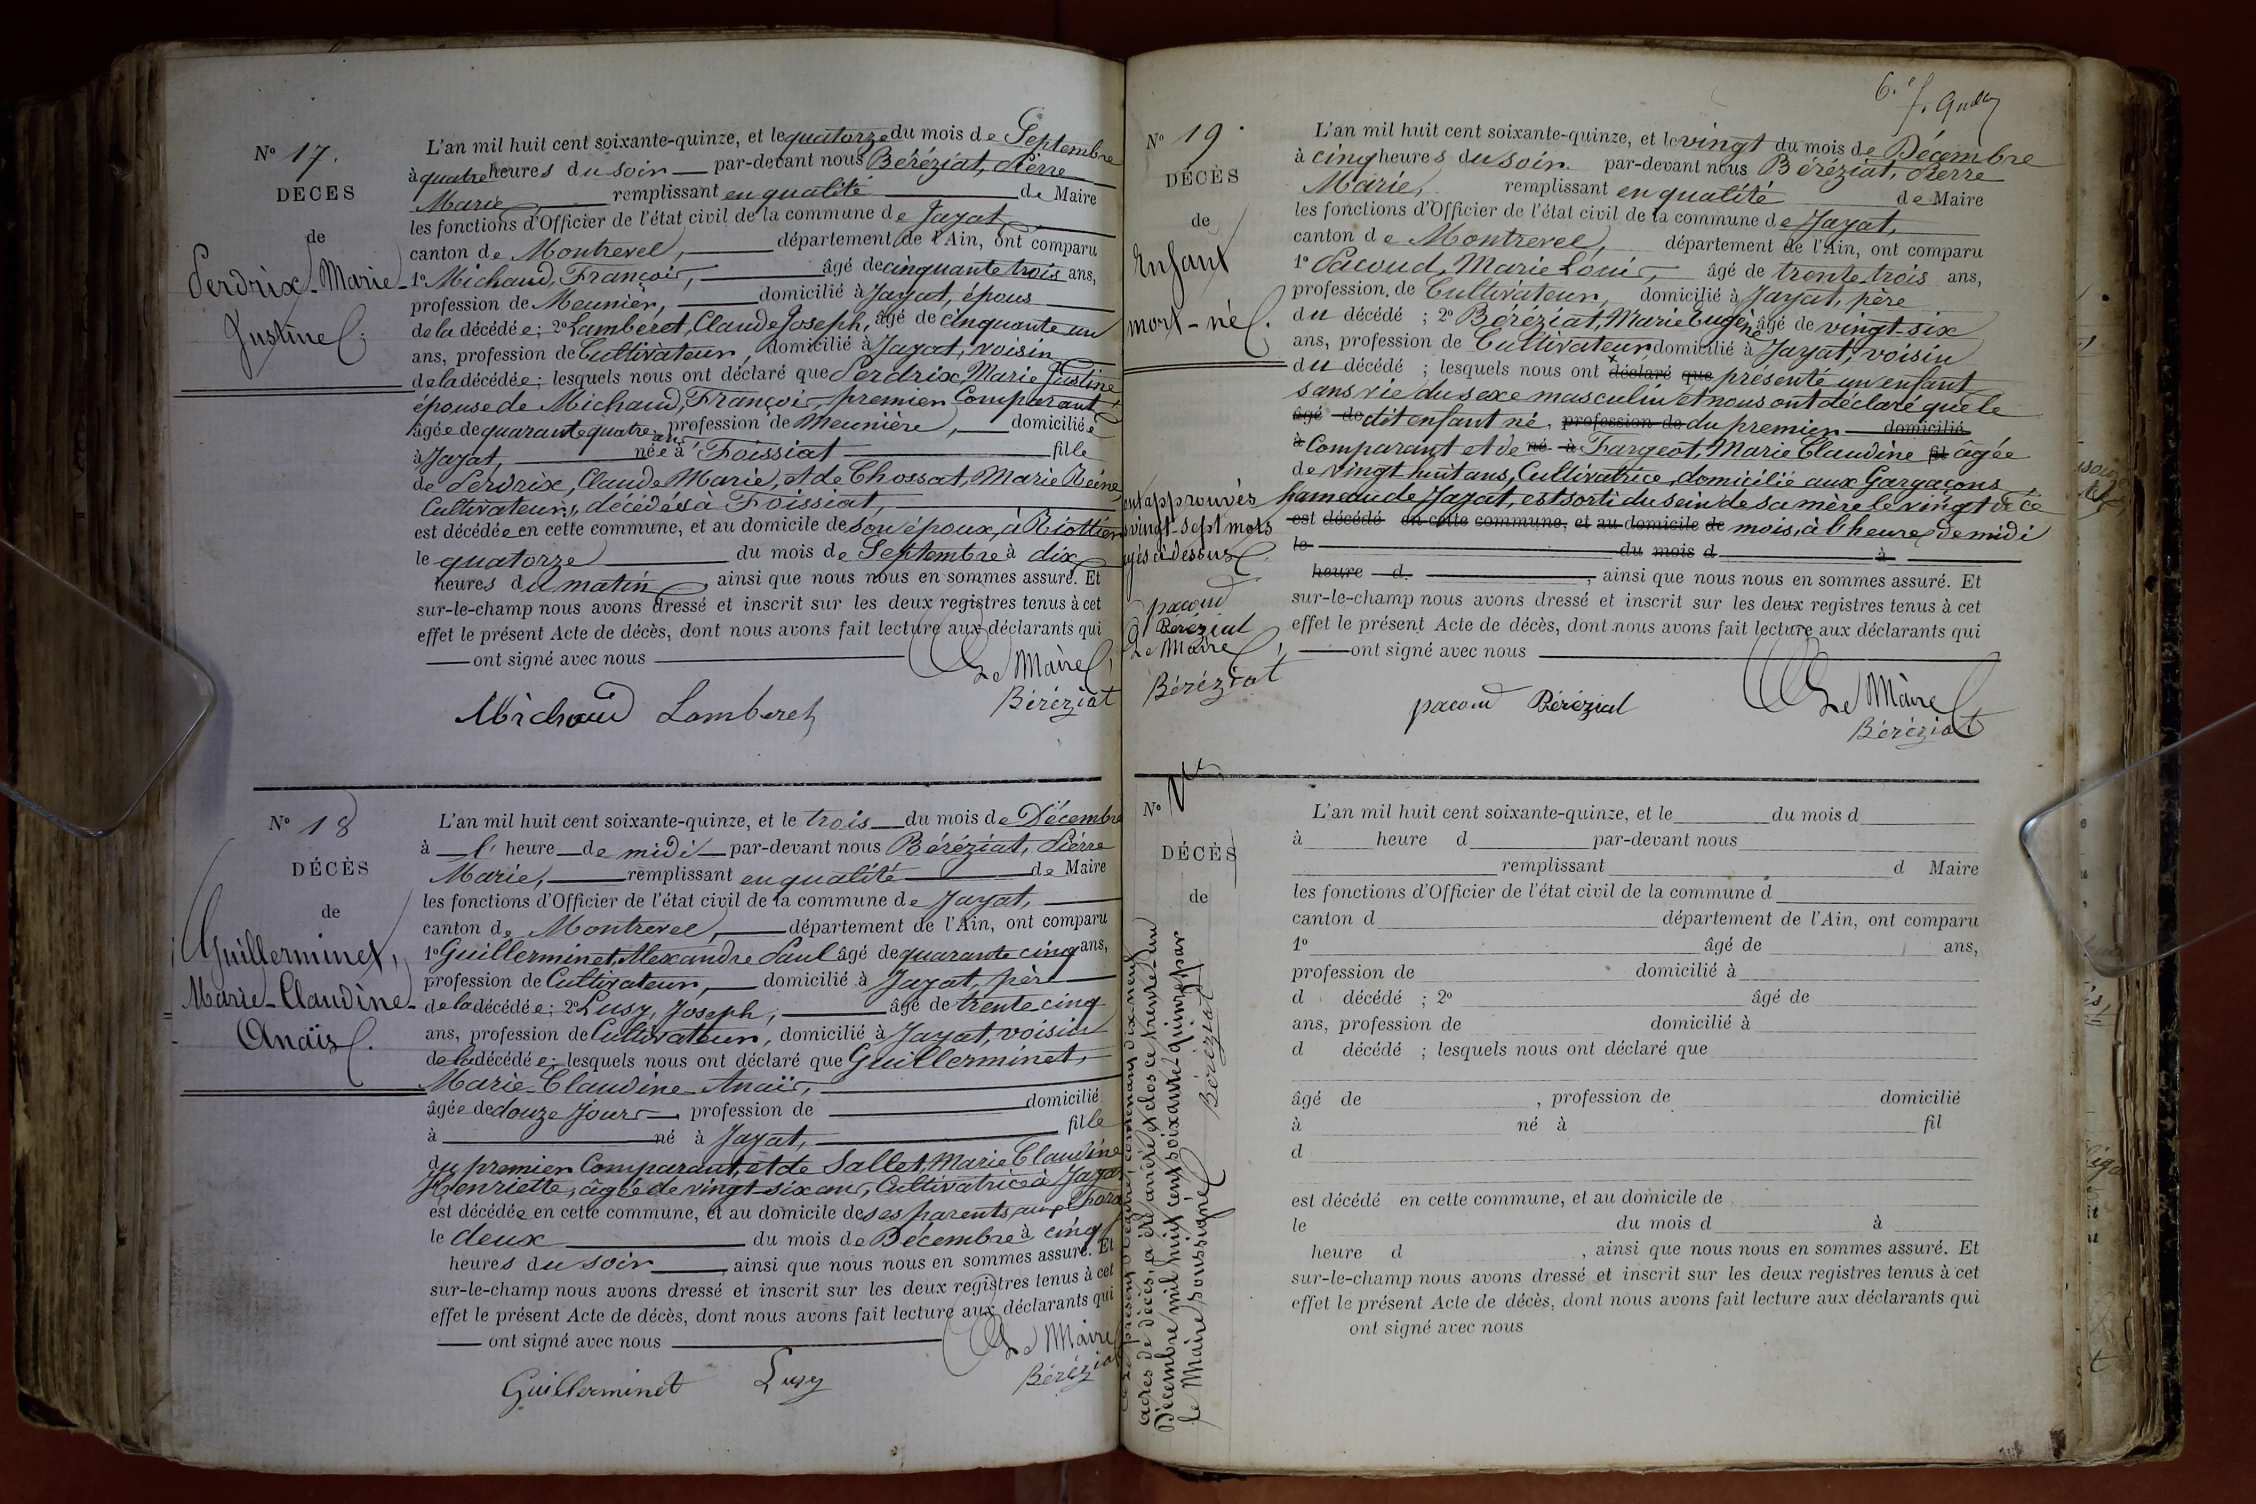 N° 17.
DÉCÈS
de
Perdrix-Marie-
Justine
L'an mil huit cent soixante-quinze, et le quatorze du mois de Septembre
à quatre heures du soir par-devant nous Béréziat, Pierre
Marie remplissant en qualité de Maire
les fonctions d'Officier de l'état civil de la commune de Jayat,
canton de Montrevel, département de l'Ain, ont comparu
1° Michaud, François, âgé de cinquante trois ans,
profession de Meunier, domicilié à Jayat, époux
de la décédée; 2° Lamberet, Claude Joseph, âgé de cinquante un
ans, profession de Cultivateur, domicilié à Jayat, voisin
de la décédée; lesquels nous ont déclaré que Perdrix, Marie Justine
épouse de Michaud, François, premier Comparant,
âgée de quarante quatre ans, profession de Meunière, domiciliée
à Jayat, née à Foissiat fille
de Perdrix, Claude Marie, et de Chossat, Marie Reine,
Cultivateurs, décédés à Foissiat,
est décédée en cette commune, et au domicile de son époux, à Riottier
le quatorze du mois de Septembre à dix
heures du matin, ainsi que nous nous en sommes assuré. Et
sur-le-champ nous avons dressé et inscrit sur les deux registres tenus à cet
effet le présent Acte de décès, dont nous avons fait lecture aux déclarants qui
ont signé avec nous
Le Maire,
Michaud Lamberet Béréziat
N° 18
DÉCÈS
de
Guillerminet,
Marie-Claudine-
Anaïs.
L'an mil huit cent soixante-quinze, et le trois du mois de Décembre
à l' heure de midi par-devant nous Béréziat, Pierre
Marie, remplissant en qualité de Maire
les fonctions d'Officier de l'état civil de la commune de Jayat,
canton de Montrevel, département de l'Ain, ont comparu
1° Guillerminet, Alexandre Paul âgé de quarante cinq ans,
profession de Cultivateur, domicilié à Jayat, père
de la décédée; 2° Lusy, Joseph, âgé de trente cinq
ans, profession de Cultivateur, domicilié à Jayat, voisin
de la décédée; lesquels nous ont déclaré que Guillerminet,
Marie-Claudine-Anaïs,
âgée de douze jours profession de domicilié
à né à Jayat, fille
du premier Comparant, et de Sallet, Marie Claudine
Henriette, âgée de vingt-six ans, Cultivatrice à Jayat
est décédée en cette commune, et au domicile de ses parents, aux
le deux du mois de Décembre à cinq
heures du soir, ainsi que nous nous en sommes assuré. Et
sur-le-champ nous avons dressé et inscrit sur les deux registres tenus à cet
effet le présent Acte de décès, dont nous avons fait lecture aux déclarants qui
ont signé avec nous
Le Maire
Guillerminet Lusy Béréziat
6.e f.
N° 19.
DÉCÈS
de
Enfant
mort-né.
L'an mil huit cent soixante-quinze, et le vingt du mois de Décembre
à cinq heures du soir par-devant nous Béréziat, Pierre
Marie, remplissant en qualité de Maire
les fonctions d'Officier de l'état civil de la commune de Jayat,
canton de Montrevel, département de l'Ain, ont comparu
1° Pacoud, Marie Louis, âgé de trente trois ans,
profession de Cultivateur, domicilié à Jayat, père
du décédé ; 2° Béréziat, Marie Eugène âgé de vingt-six
ans, profession de Cultivateur, domicilié à Jayat, voisin
du décédé ; lesquels nous ont déclaré que présenté un enfant
sans vie du sexe masculin et nous ont déclaré que le
âgé de dit enfant né, profession de du premier domicilié
à Comparant et de né à Fargeot, Marie Claudine fil âgée
de vingt huit ans, Cultivatrice, domiciliée aux Gargaçons
hameau de Jayat, est sorti du sein de sa mère le vingt de ce
est décédé en cette commune, et au domicile de mois, à l'heure de midi
le du mois d à
heure d , ainsi que nous nous en sommes assuré. Et
sur-le-champ nous avons dressé et inscrit sur les deux registres tenus à cet
effet le présent Acte de décès, dont nous avons fait lecture aux déclarants qui
ont signé avec nous
approuvés
vingt-sept mots
ci-dessus
pacoud
Béréziat
Le Maire,
Béréziat
pacoud Béréziat Le Maire
Béréziat
N°
DÉCÈS
de
L'an mil huit cent soixante-quinze, et le du mois d
à heure d par-devant nous
remplissant d Maire
les fonctions d'Officier de l'état civil de la commune d
canton d département de l'Ain, ont comparu
1° âgé de ans,
profession de domicilié à
d décédé ; 2° âgé de
ans, profession de domicilié à
d décédé ; lesquels nous ont déclaré que
âgé de , profession de domicilié
à né à fil
d
est décédé en cette commune, et au domicile de
le du mois d à
heure d , ainsi que nous nous en sommes assuré. Et
sur-le-champ nous avons dressé et inscrit sur les deux registres tenus à cet
effet le présent Acte de décès, dont nous avons fait lecture aux déclarants qui
ont signé avec nous
le présent contenant dix-neuf
actes de décès, a été arrêté et clos ce trente-un
Décembre mil huit cent soixante-quinze par
le Maire soussigné
Béréziat